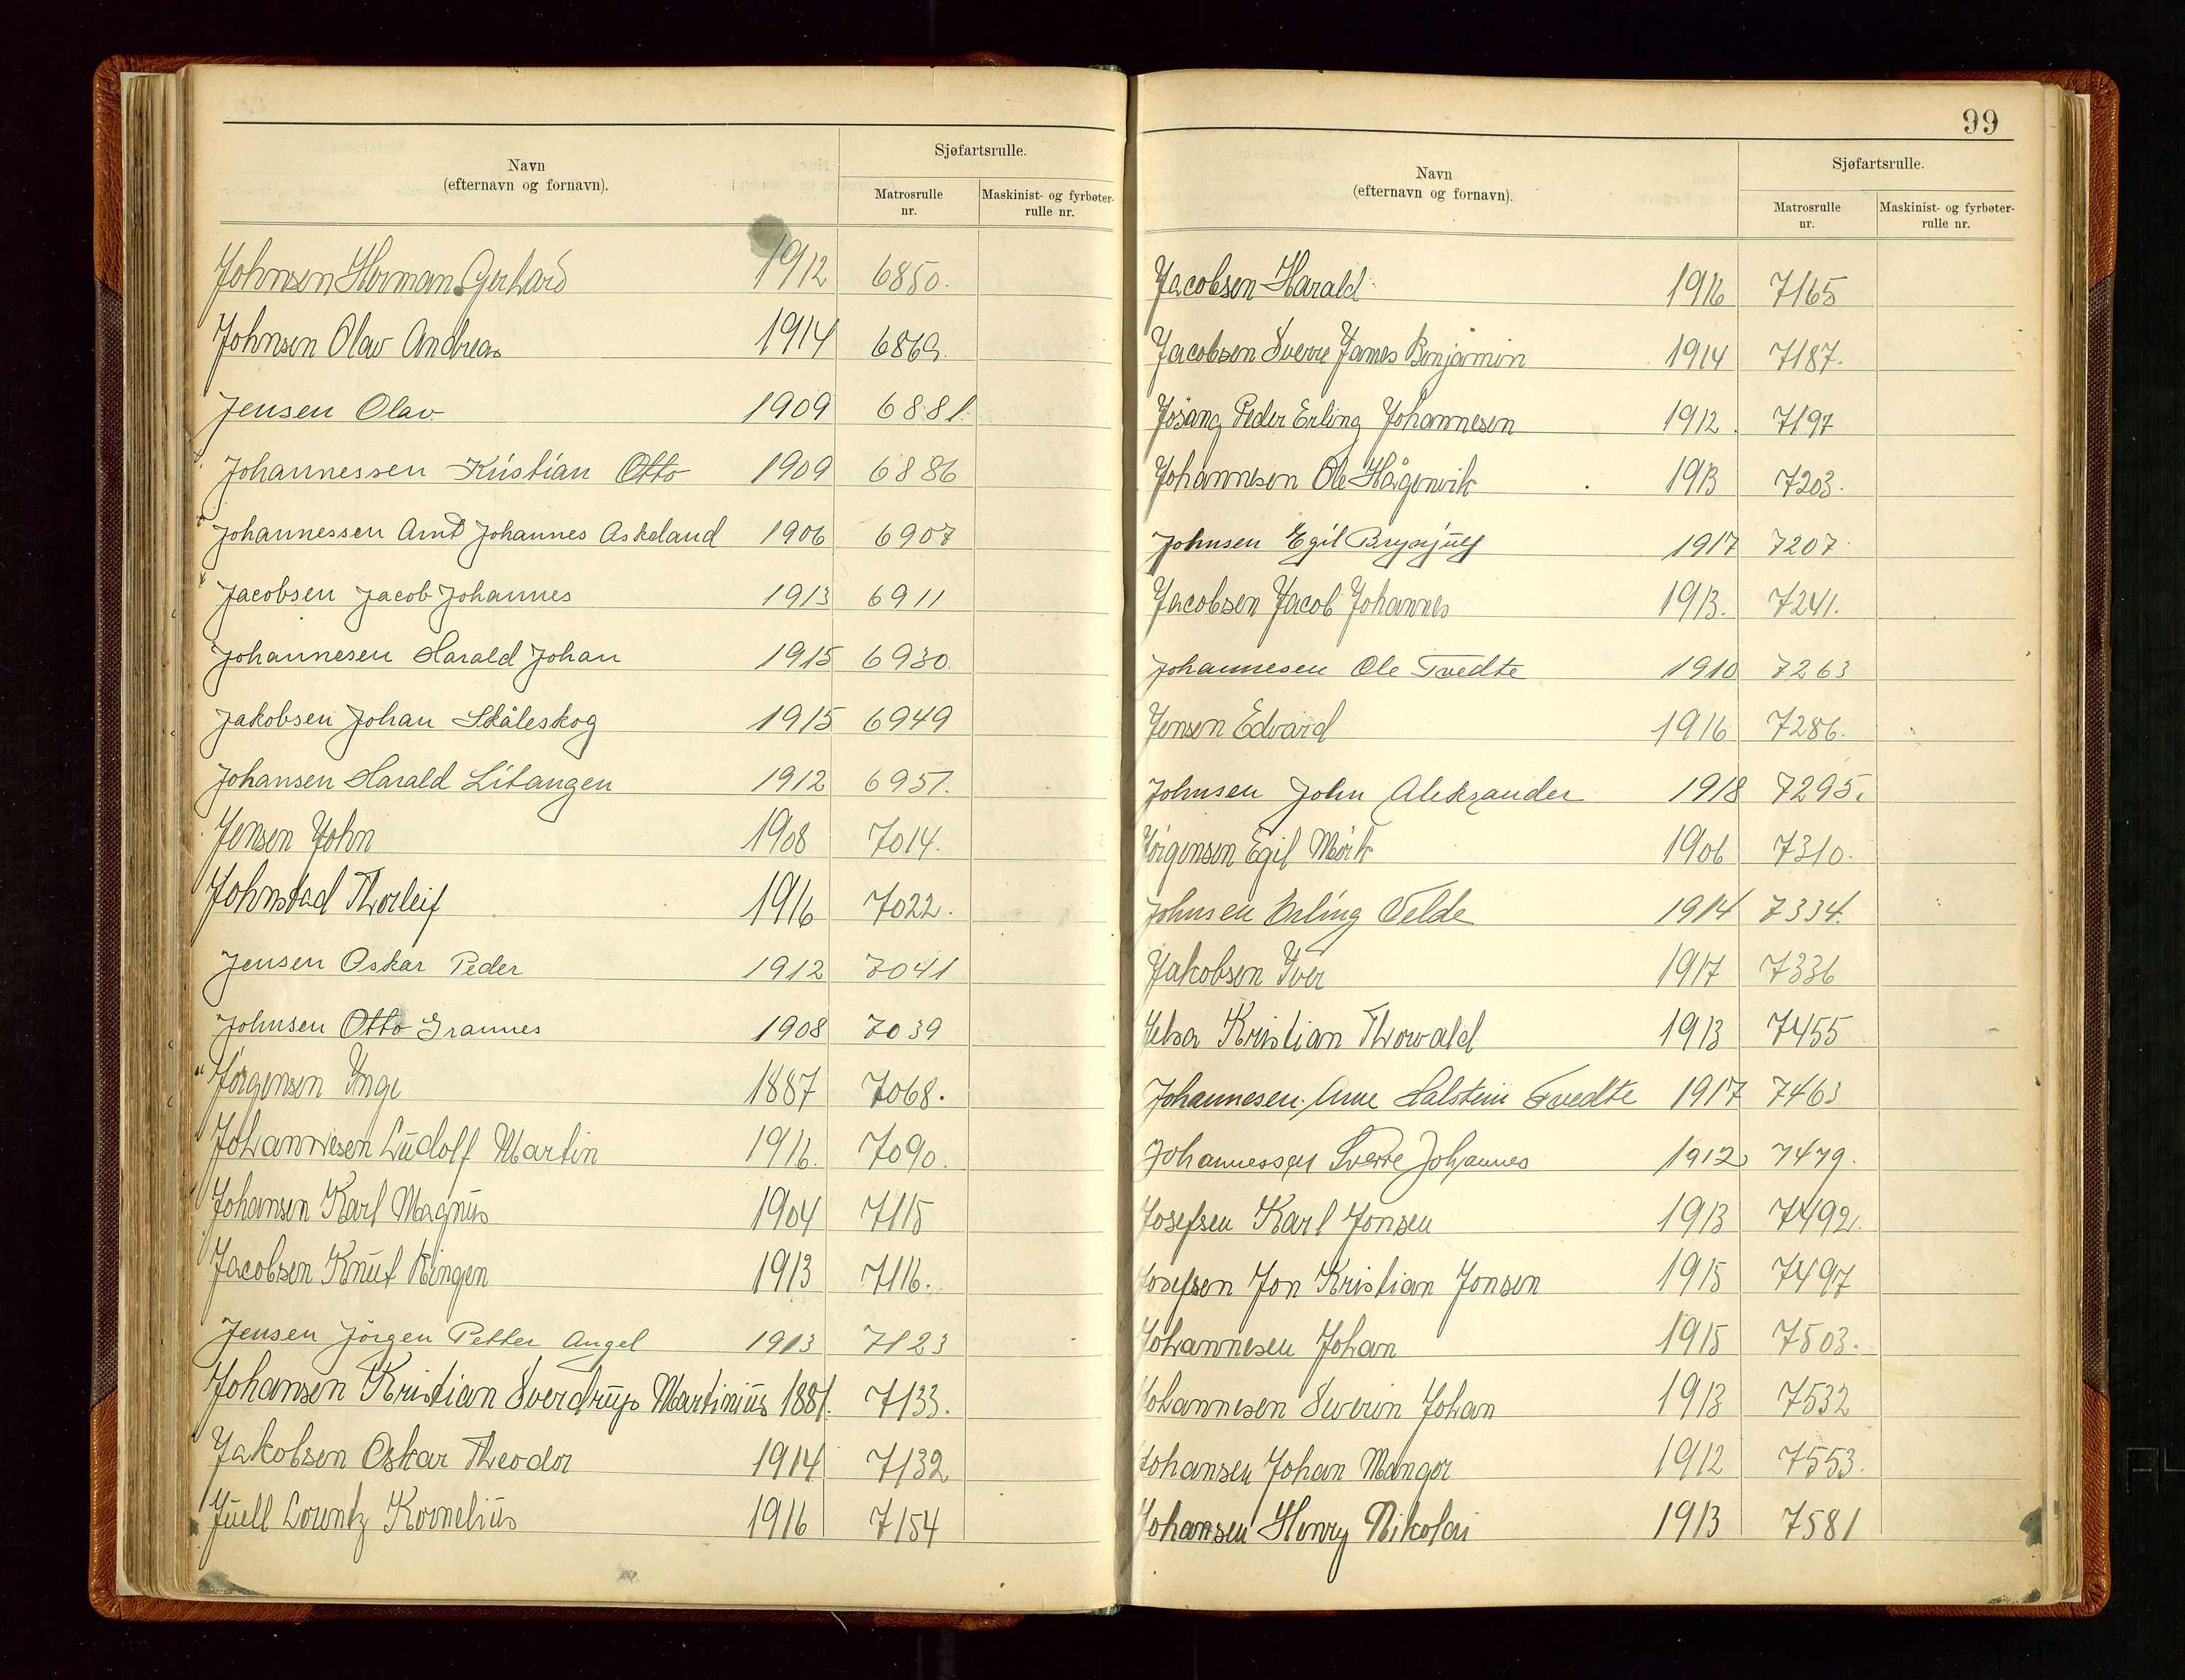 Navn
(efternavn og fornavn).
Sjøfartsrulle.
Matrosrulle nr.
Maskinist- og fyrbøter-rulle nr.
Johnsen Herman Gerhard 1912 6850.
Johnsen Olav Andreas 1914 6869.
Jensen Olav 1909 6881.
Johannessen Kristian Otto 1909 6886
Johannessen Arnt Johannes Askeland 1906 6907
Jacobsen Jacob Johannes 1913 6911
Johannesen Harald Johan 1915 6930.
Jakobsen Johan Skåleskog 1915 6949
Johansen Harald Litangen 1912 6951.
Jensen John 1908 7014.
Johnstad Thorleif 1916 7022.
Jensen Oskar Peder 1912 7041
Johnsen Otto Grannes 1908 7039
Jørgensen Inge 1887 7068.
Johannesen Ludolf Martin 1916. 7090.
Johansen Karl Magnus 1904 7115
Jacobsen Knut Ringen 1913 7116.
Jensen Jörgen Petter Angel 1913 7123
Johansen Kristian Sverdrup Martinius 1881. 7133.
Jakobsen Oskar Theodor 1914 7132
Juell Lorentz Kornelius 1916 7154
99
Navn
(efternavn og fornavn).
Sjøfartsrulle.
Matrosrulle nr.
Maskinist- og fyrbøter-rulle nr.
Jacobsen Harald 1916 7165
Jacobsen Sverre James Benjamin 1914 7187.
Jösang Peder Erling Johannesen 1912. 7197
Johannesen Ole Hågenvik 1913 7203.
Johnsen Egil Brynjulf 1917 7207
Jacobsen Jacob Johannes 1913. 7241.
Johannesen Ole Tvedte 1910 7263
Jensen Edvard 1916 7286.
Johnsen John Aleksander 1918 7295.
Jörgensen Egil Mörk 1906 7310.
Johnsen Erling Velde 1914 7334.
Jakobsen Iver 1917 7336
Jelsa Kristian Thorvald 1913 7455
Johannesen Arne Halstein Tvedte 1917 7463
Johannessen Sverre Johannes 1912 7479.
Josefsen Karl Jonsen 1913 7492.
Josefsen Jon Kristian Jonsen 1915 7497
Johannesen Johan 1915 7503.
Johannesen Severin Johan 1913 7532
Johansen Johan Mangor 1912 7553.
Johansen Henry Nikolai 1913 7581